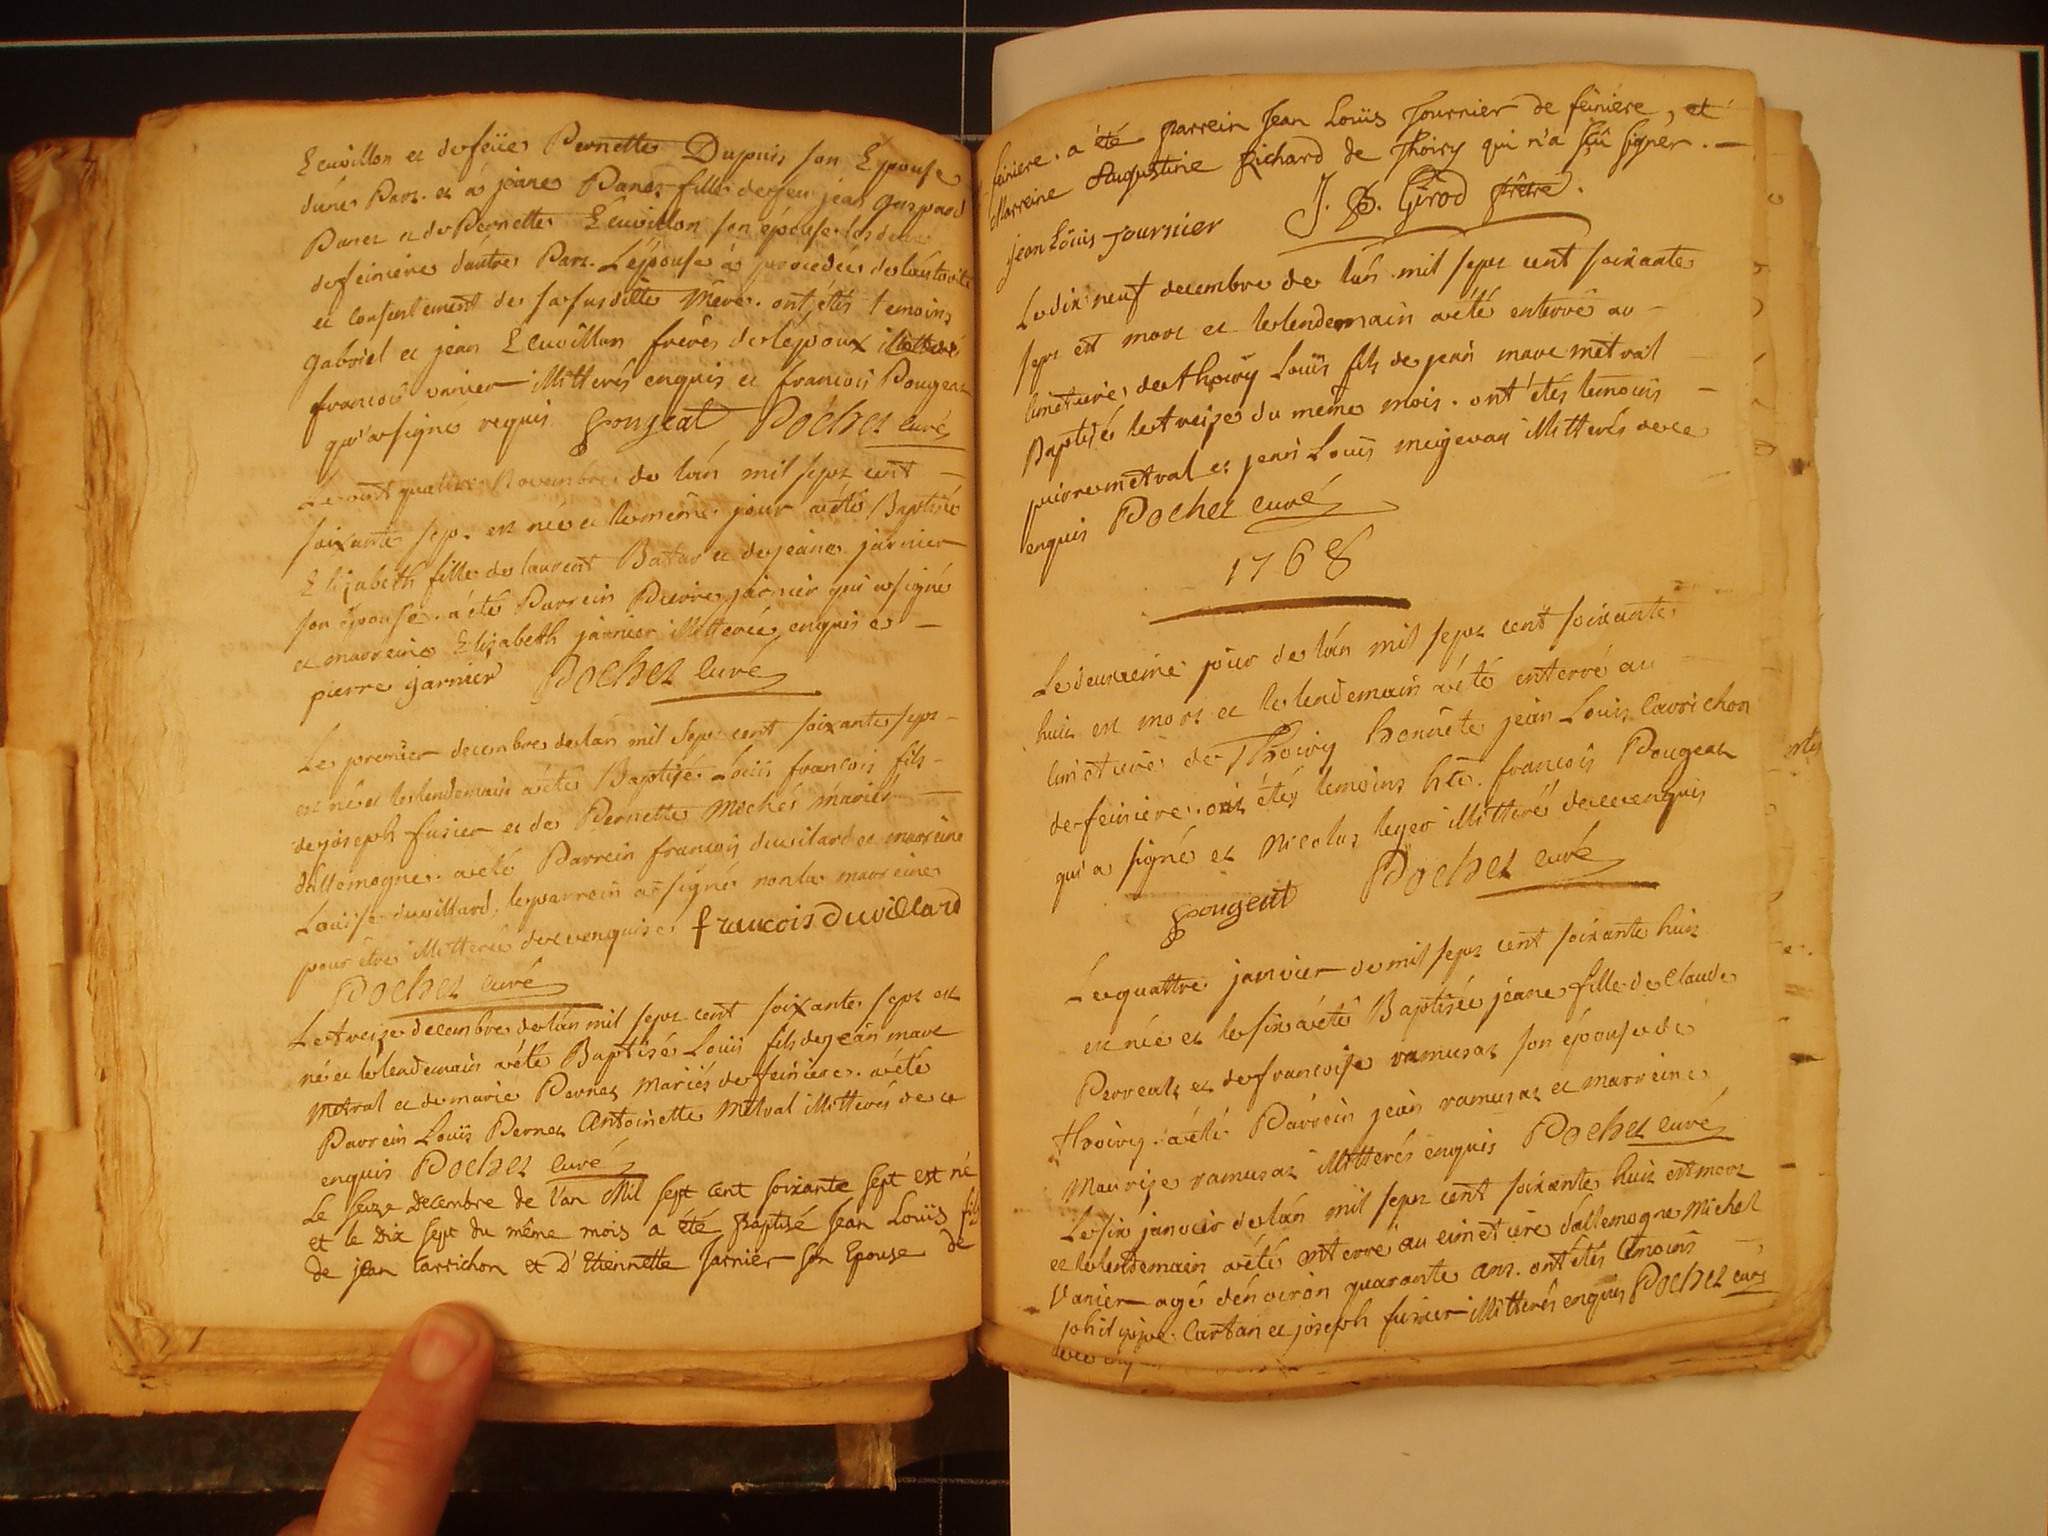 Ecuvillon et de feüe Pernette Dupuis son Epouse
d'une Part. et à jeane Panez fille de feu jean gaspard
Panez et de Pernette Ecuvillon son épouse les deux
de feiniere d'autre Part. L'épouse à procedée de l'autorité
et consentement de sa susditte Mere. ont étés temoins
gabriel et jean Ecuvillon freres de l'époux
francois vanier illitterés enquis et francois Pougeat
qui a signé requis. Pougeat Pochet curé
Le vint quatre Novembre de l'an mil sept cent
soixante sept. est née et le meme jour a été Baptisée
Elizabeth fille de laurent Batar et de jeane jarnier
son épouse. a été Parrein Pierre jarnier qui a signé
et marreine Elizabeth jarnier illitterée enquise
pierre garnier Pochet curé
Le premier decembre de l'an mil sept cent soixante sept
est né et le lendemain a été Baptisé Louis francois fils
de joseph fusier et de Pernette Mochés mariés
d'allemogne. a été Parrein francois duvilard et marreine
Louise duvillard, le parrein a signé non la marreine
pour être illitterée de ce enquise. francois duvillard
Pochet curé
Le treize decembre de l'an mil sept cent soixante sept est
né et le lendemain a été Baptisé Louis fils de jean marc
Metral et de marie Pernet Mariés de feiniere. a été
Parrein Louis Pernet Antoinette Metral illitterés de ce
enquis Pochet curé
Le seize Decembre de l'an Mil sept cent soixante sept est né
et le Dix sept du même mois a été Baptisé Jean Loüis fils
de jean Carrichon et D'Etiennette Jarnier son Epouse de
feiniere. a été parrein Jean Loüis Fournier de feiniere, et
Marreine Augustine Richard de Thoiry qui n'a sçû signer.
jean Loüis fournier J. B. Girod prêtre.
Le dix neuf decembre de l'an mil sept cent soixante
sept est mort et le lendemain a été enterré au
cimetiere de thoiry Louis fils de jean marc metral
Baptisé le treize du même mois. ont étés temoins
pierre metral et jean Louis megevan illitterés de ce
enquis Pochet curé
1768
Le deuxieme jour de l'an mil sept cent soixante
huit est mort et le lendemain a été enterré au
cimetiere de Thoiry honnete jean Louis Carrichon
de feiniere. ont étés temoins hte. francois Pougeat
qui a signé et Nicolas leger illitteré de ce enquis
pougeat Pochet curé
Le quattre janvier de mil sept cent soixante huit
est née et le six a été Baptisée jeane fille de Claude
Perreal et de francoise ramusat son épouse de
thoiry. a été Parrein jean ramusat et marreine
Maurise ramusat illitterés enquis Pochet curé
Le six janvier de l'an mil sept cent soixante huit est mort
et le lendemain a été enterré au cimetiere d'allemogne Michel
Vanier agé d'environ quarante ans. ont étés temoins
Cartan et joseph fusier illitterés enquis Pochet curé